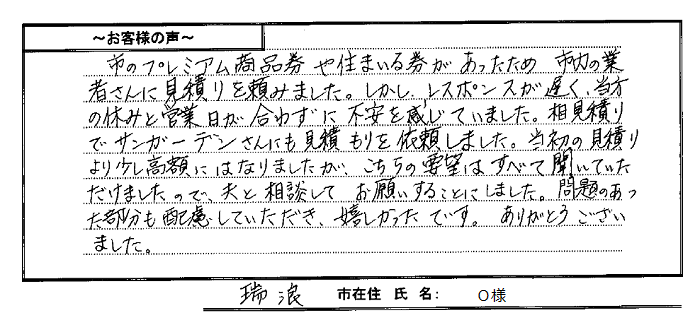 ～お客様の声～
市のプレミアム商品券や住まいる券があったため 市内の業
者さんに見積りを頼みました。しかし、レスポンスが遅く、当方
の休みと営業日が合わずに不安を感じていました。相見積り
でサンガーデンさんにも見積もりを依頼しました。当初の見積り
より少し高額にはなりましたが、こちらの要望はすべて聞いていた
だけましたので、夫と相談してお願いすることにしました。問題のあっ
た部分も配慮していただき、嬉しかったです。ありがとうござい
ました。
瑞浪 市在住 氏 名: O様